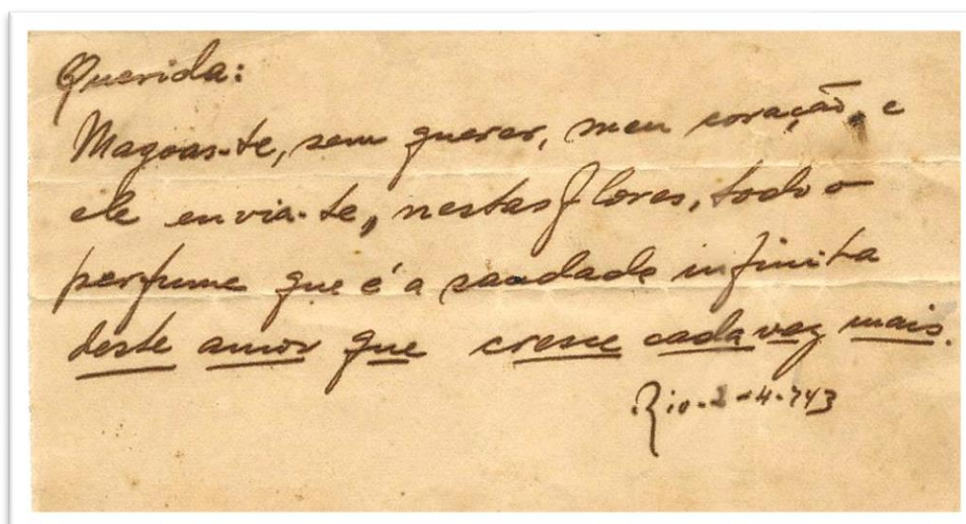 Querida:
Magoas-te, sem querer, meu coração, e
ele envia-te, nestas flores, todo o
perfume que é a saudade infinita
deste amor que cresce cada vez mais.
Rio-2-4-943